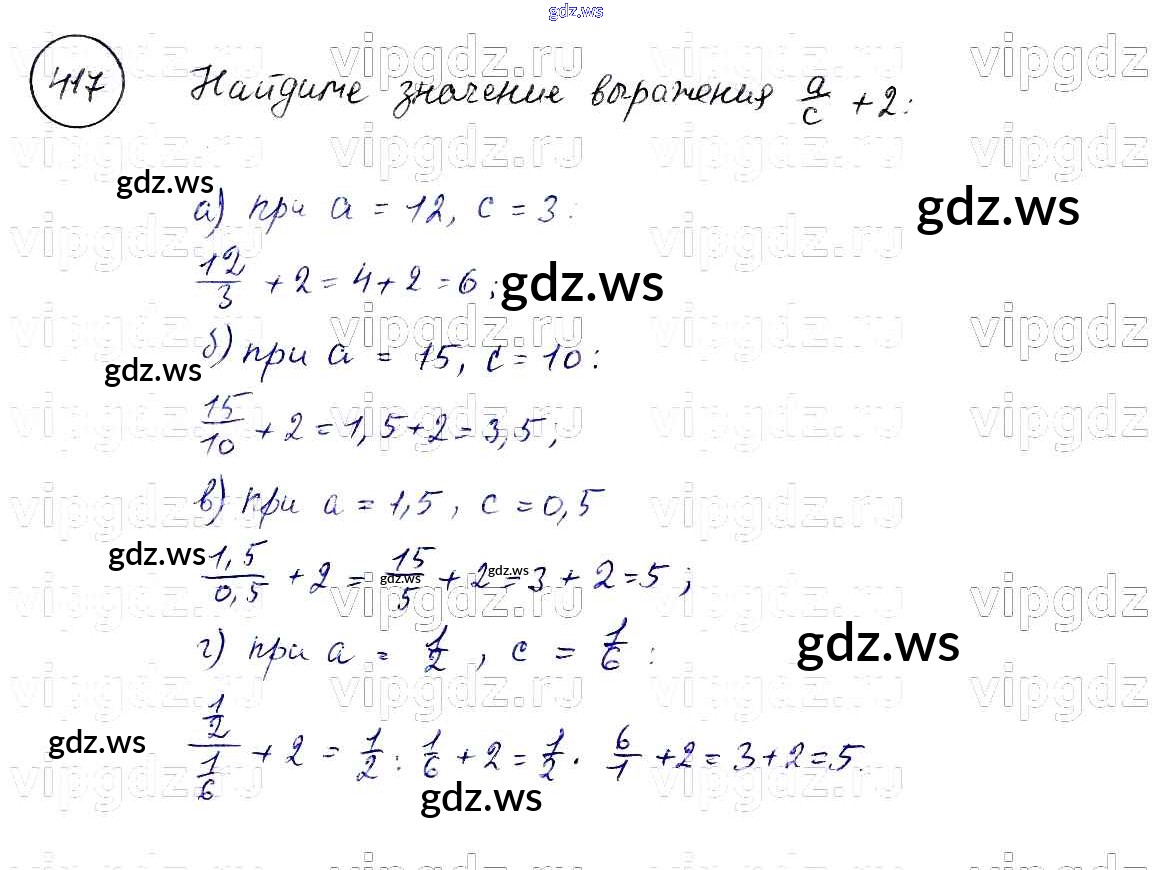 gdz.ws
417 Найдите значение выражения a/c + 2:
gdz.ws
а) при a = 12, c = 3:
gdz.ws
12/3 + 2 = 4 + 2 = 6;
gdz.ws
б) при a = 15, c = 10:
gdz.ws
15/10 + 2 = 1,5 + 2 = 3,5;
в) при a = 1,5, c = 0,5
gdz.ws
1,5/0,5 + 2 = 15/5 + 2 = 3 + 2 = 5;
gdz.ws
gdz.ws
г) при a = 1/2, c = 1/6:
gdz.ws
gdz.ws
(1/2)/(1/6) + 2 = 1/2 : 1/6 + 2 = 1/2 · 6/1 + 2 = 3 + 2 = 5.
gdz.ws
vipgdz.ru